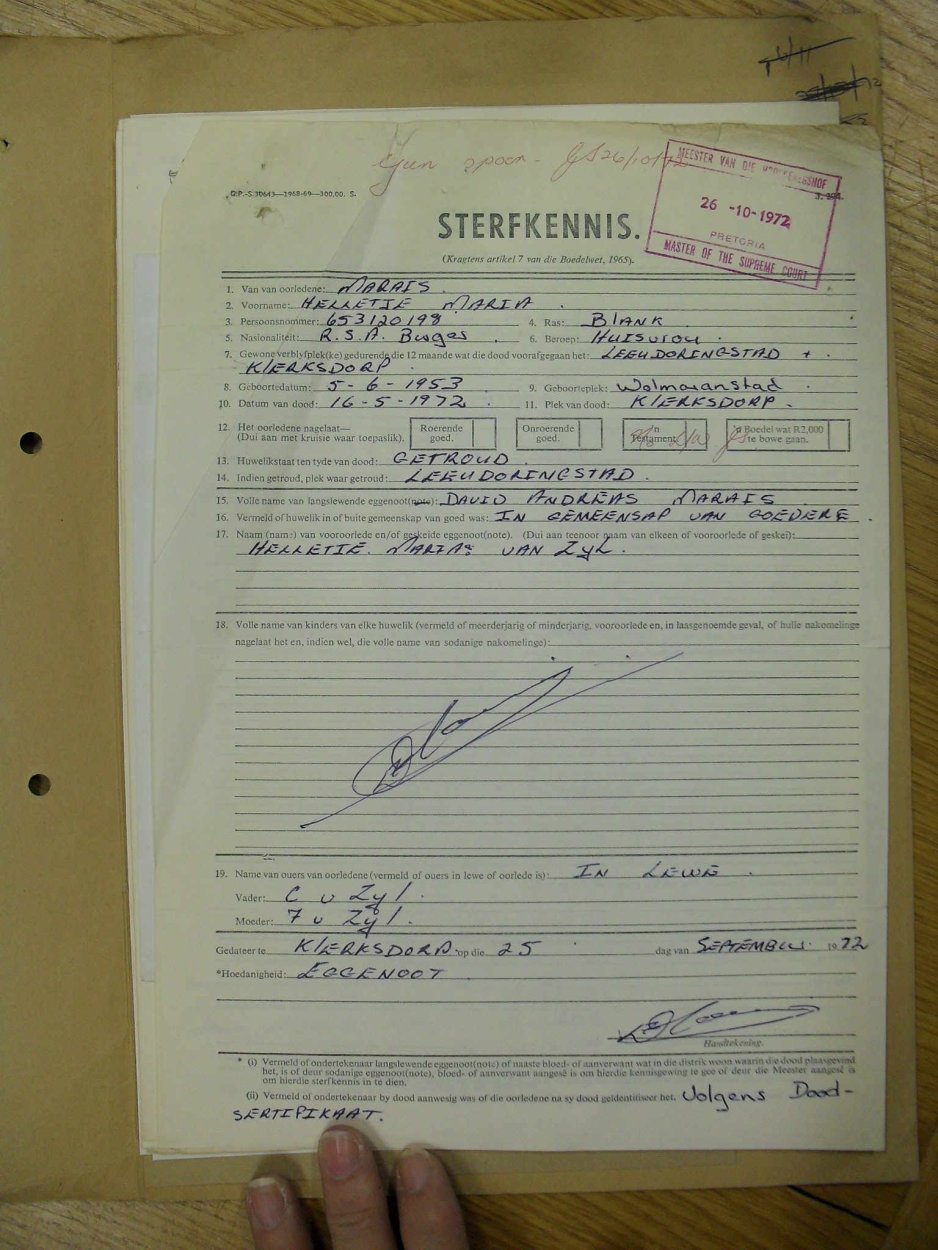 Geen spoor - JS 26/10/72
MEESTER VAN DIE HOOGGEREGSHOF
26 -10- 1972
PRETORIA
MASTER OF THE SUPREME COURT
G.P.-S.30643—1968-69—300,00. S.
J. 294.
STERFKENNIS.
(Kragtens artikel 7 van die Boedelwet, 1965).
1. Van van oorledene: MARAIS.
2. Voorname: HELLETJE MARIA.
3. Persoonsnommer: 653120198 4. Ras: BLANK
5. Nasionaliteit: R.S.A. Burger 6. Beroep: HUISVROU.
7. Gewone verblyfplek(ke) gedurende die 12 maande wat die dood voorafgegaan het: LEEUDORINGSTAD +
KLERKSDORP.
8. Geboortedatum: 5-6-1953 9. Geboorteplek: Wolmaranstad.
10. Datum van dood: 16-5-1972. 11. Plek van dood: KLERKSDORP.
12. Het oorledene nagelaat—
(Dui aan met kruisie waar toepaslik).
Roerende goed.
Onroerende goed.
'n Testament.
'n Boedel wat R2,000 te bowe gaan.
13. Huwelikstaat ten tyde van dood: GETROUD.
14. Indien getroud, plek waar getroud: LEEUDORINGSTAD.
15. Volle name van langslewende eggenoot(note): DAVID ANDREAS MARAIS
16. Vermeld of huwelik in of buite gemeenskap van goed was: IN GEMEENSAP VAN GOEDERE.
17. Naam (name) van vooroorlede en/of geskeide eggenoot(note). (Dui aan teenoor naam van elkeen of vooroorlede of geskei):
HELLETJE. MARIA VAN ZyL.
18. Volle name van kinders van elke huwelik (vermeld of meerderjarig of minderjarig, vooroorlede en, in laasgenoemde geval, of hulle nakomelinge
nagelaat het en, indien wel, die volle name van sodanige nakomelinge):
19. Name van ouers van oorledene (vermeld of ouers in lewe of oorlede is): IN LEWE.
Vader: C v Zyl.
Moeder: 7 v Zyl.
Gedateer te KLERKSDORP op die 25 dag van SEPTEMBER 1972
*Hoedanigheid: EGGENOOT.
Handtekening.
* (i) Vermeld of ondertekenaar langslewende eggenoot(note) of naaste bloed- of aanverwant wat in die distrik woon waarin die dood plaasgevind
het, is of deur sodanige eggenoot(note), bloed- of aanverwant aangesê is om hierdie kennisgewing te gee of deur die Meester aangesê is
om hierdie sterfkennis in te dien.
(ii) Vermeld of ondertekenaar by dood aanwesig was of die oorledene na sy dood geïdentifiseer het. Volgens Dood-
SERTIFIKAAT.